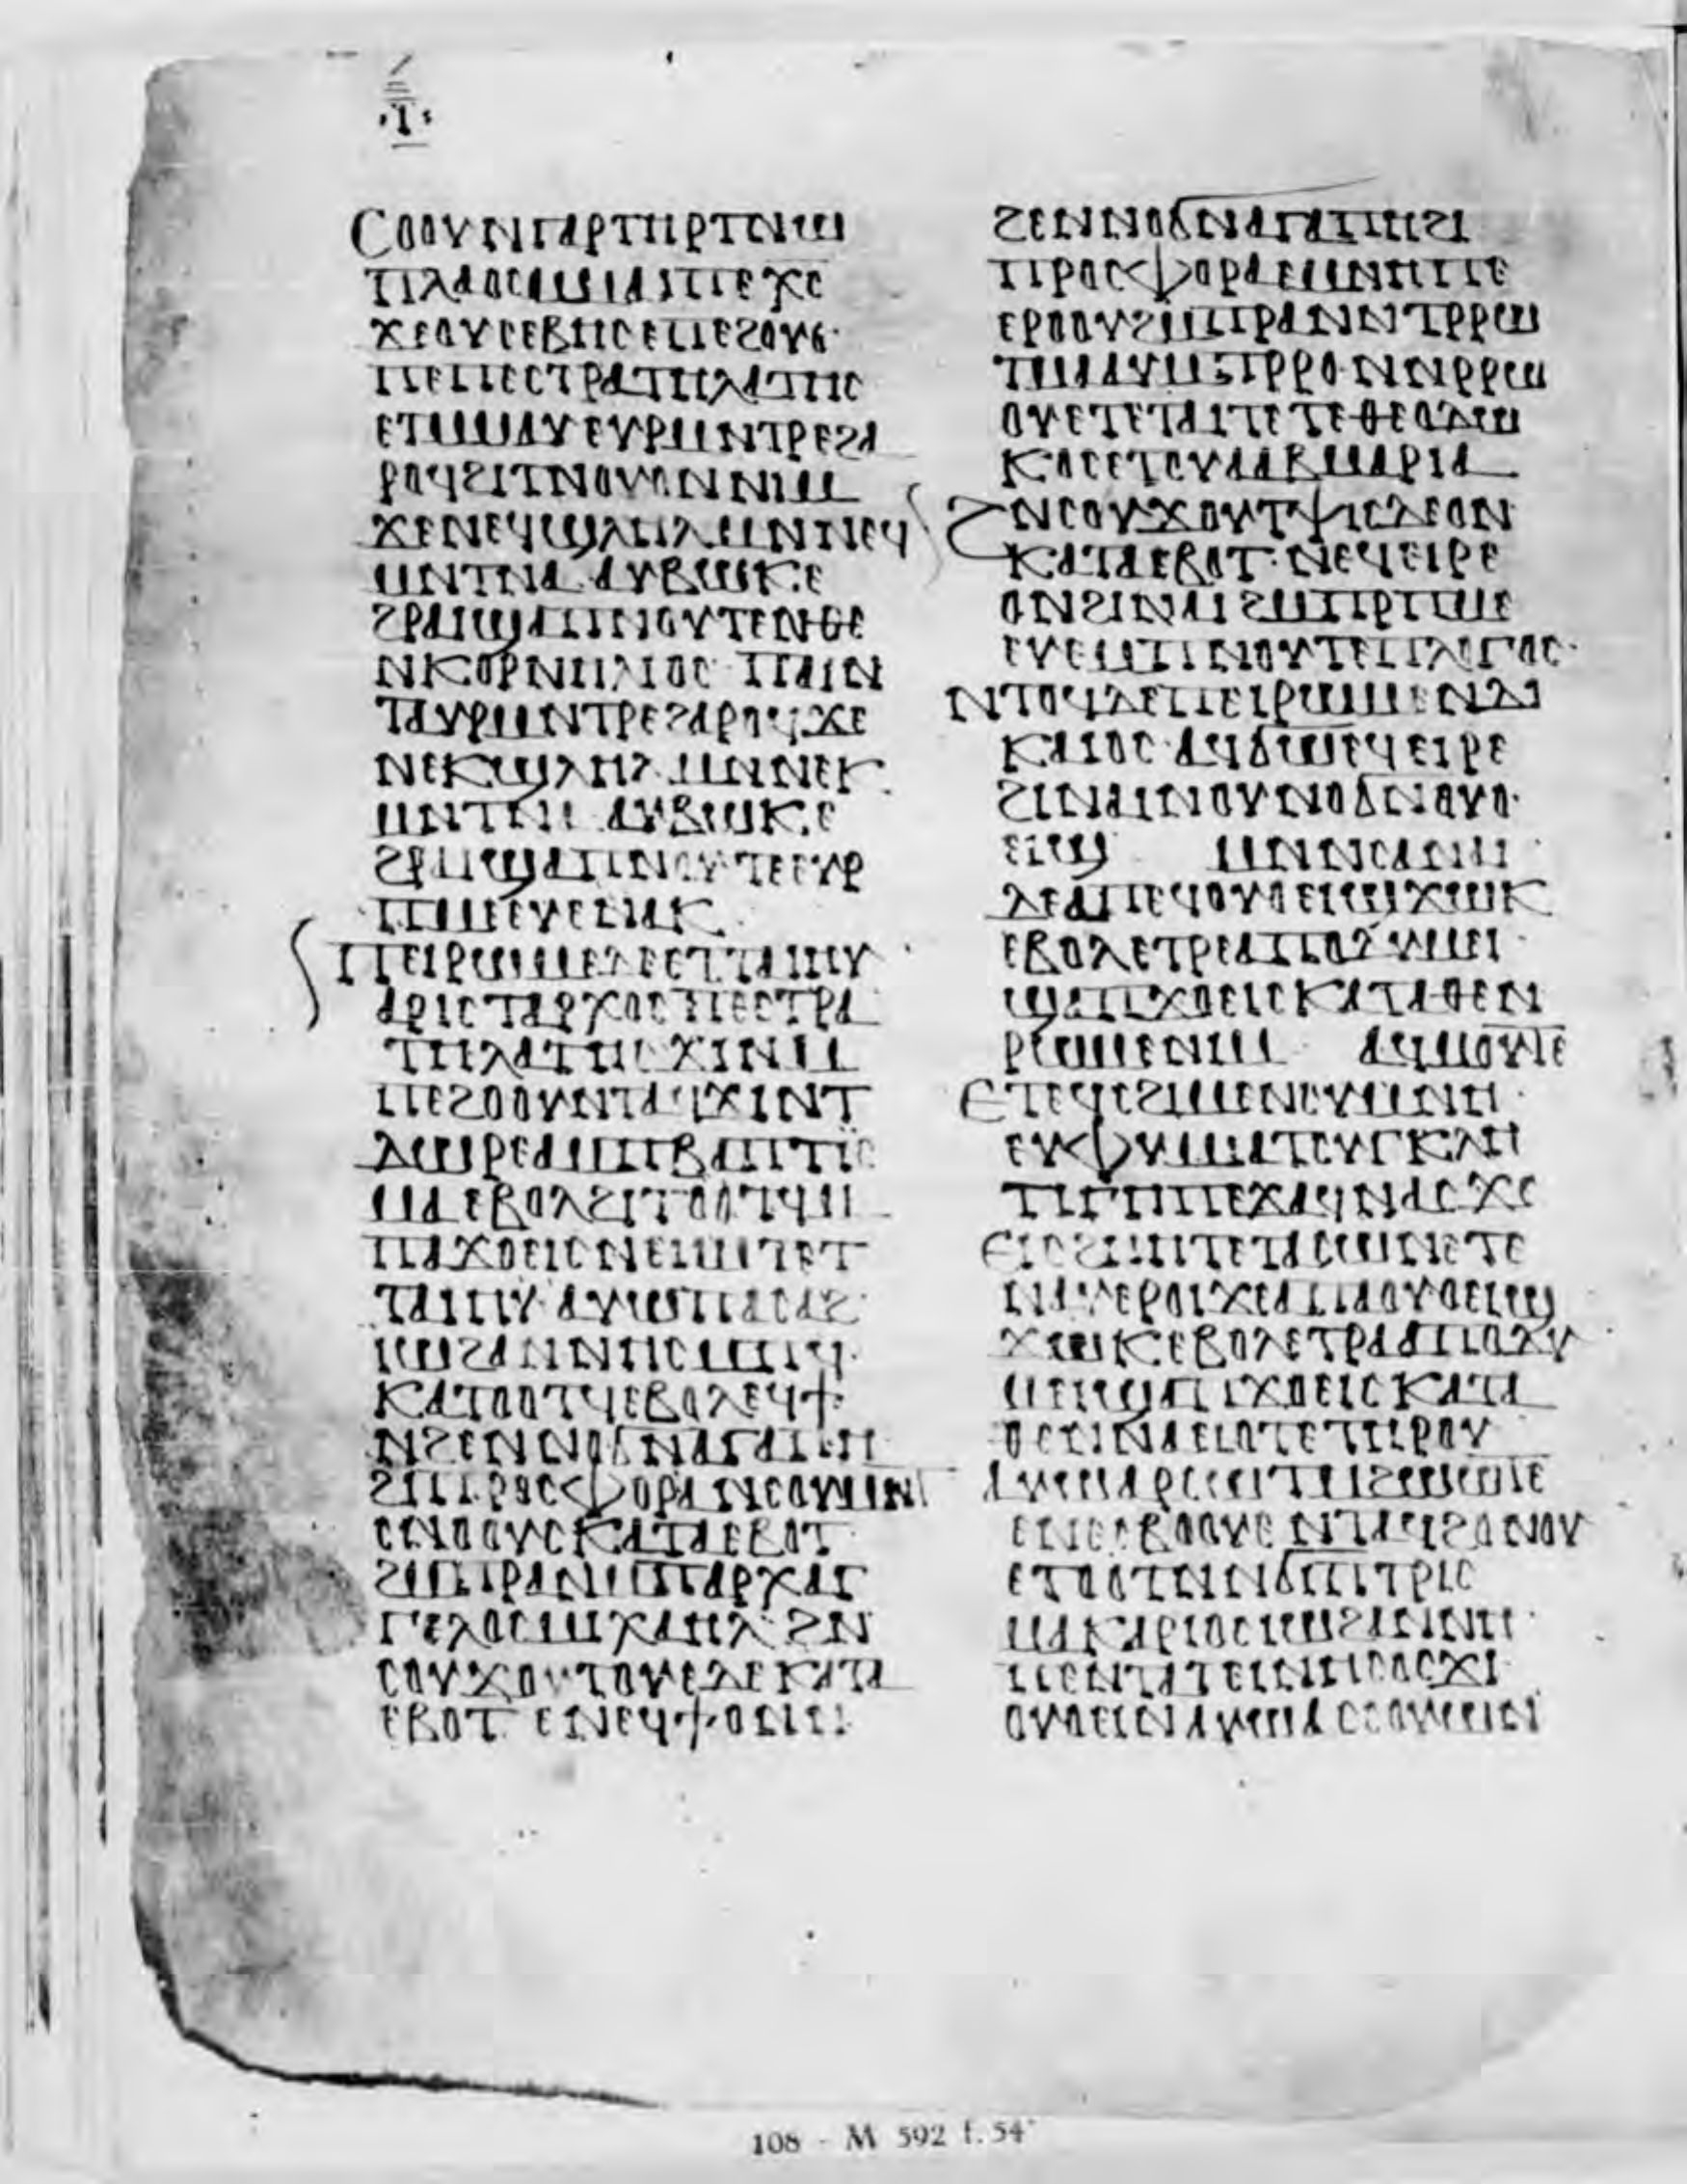 ·Ⲓ·
ⲤⲞⲞⲨⲚ ⲄⲀⲢ ⲦⲎⲢⲦⲚ Ⲱ
ⲠⲖⲀⲞⲤ ⲘⲘⲀⲒⲠⲈⲬⲤ
ϪⲈ ⲞⲨⲈⲨⲤⲈⲂⲎⲤ ⲈⲠⲈϨⲞⲨⲞ
ⲠⲈ ⲠⲈⲤⲦⲢⲀⲦⲎⲖⲀⲦⲎⲤ
ⲈⲦⲘⲘⲀⲨ ⲈⲨⲢⲘⲚⲦⲢⲈ ϨⲀ
ⲢⲞϤ ϨⲒⲦⲚ ⲞⲨⲞⲚ ⲚⲒⲘ
ϪⲈ ⲚⲈϤϢⲖⲎⲖ ⲘⲚ ⲚⲈϤ
ⲘⲚⲦⲚⲀ ⲀⲨⲂⲰⲔ Ⲉ
ϨⲢⲀⲒ ϢⲀ ⲠⲚⲞⲨⲦⲈ ⲚⲐⲈ
ⲚⲔⲞⲢⲚⲎⲖⲒⲞⲤ ⲠⲀⲒ Ⲛ
ⲦⲀⲨⲢⲘⲚⲦⲢⲈ ϨⲀⲢⲞϤ ϪⲈ
ⲚⲈⲔϢⲖⲎⲖ ⲘⲚ ⲚⲈⲔ
ⲘⲚⲦⲚⲀ ⲀⲨⲂⲰⲔ Ⲉ
ϨⲢⲀⲒ ϢⲀ ⲠⲚⲞⲨⲦⲈ ⲈⲨⲢ
ⲠⲘⲈⲈⲨⲈ ⲘⲘⲞⲔ
ⲠⲈⲒⲢⲰⲘⲈ ⲆⲈ ⲈⲦⲦⲀⲒⲎⲨ
ⲀⲢⲒⲤⲦⲀⲢⲬⲞⲤ ⲠⲈⲤⲦⲢⲀ
ⲦⲎⲖⲀⲦⲎⲤ ϪⲒⲚ Ⲙ
ⲠⲈϨⲞⲞⲨ ⲚⲦⲀϤϪⲒ ⲚⲦ
ⲆⲰⲢⲈⲀ ⲘⲠⲂⲀⲠⲦⲒⲤ
ⲘⲀ ⲈⲂⲞⲖ ϨⲒⲦⲞⲞⲦϤ Ⲙ
ⲠⲀϪⲞⲈⲒⲤ ⲚⲈⲒⲰⲦ ⲈⲦ
ⲦⲀⲒⲎⲨ ⲀⲨⲰ ⲠⲀⲤⲀϨ
ⲒⲰϨⲀⲚⲚⲎⲤ ⲘⲠϤ
ⲔⲀⲦⲞⲞⲦϤ ⲈⲂⲞⲖ ⲈϤϮ
ⲚϨⲈⲚⲚⲞϬ ⲚⲀⲄⲀⲠⲎ
ϨⲒ ⲠⲢⲞⲤⲪⲞⲢⲀ ⲚⲤⲞⲨⲘⲚⲦ
ⲤⲚⲞⲞⲨⲤ ⲔⲀⲦⲀ ⲈⲂⲞⲦ
ϨⲘ ⲠⲢⲀⲚ ⲘⲠⲀⲢⲬⲀⲄ
ⲄⲈⲖⲞⲤ ⲘⲒⲬⲀⲎⲖ ϨⲚ
ⲤⲞⲨϪⲞⲨⲦⲞⲨⲈ ⲆⲈ ⲔⲀⲦⲀ
ⲈⲂⲞⲦ ⲈⲚⲈϤϮ ⲞⲚ Ⲛ
ϨⲈⲚⲚⲞϬ ⲚⲀⲄⲀⲠⲎ ϨⲒ
ⲠⲢⲞⲤⲪⲞⲢⲀ ⲈⲘⲚ ⲎⲠⲈ
ⲈⲢⲞⲞⲨ ϨⲘ ⲠⲢⲀⲚ ⲚⲦⲢⲢⲰ
ⲦⲘⲀⲀⲨ ⲘⲠⲢⲢⲞ ⲚⲚⲢⲢⲰ
ⲞⲨ ⲈⲦⲈ ⲦⲀⲒ ⲦⲈ ⲦⲈⲐⲈⲞⲆⲰ
ⲔⲞⲤ ⲈⲦⲞⲨⲀⲀⲂ ⲘⲀⲢⲒⲀ
ϨⲚ ⲤⲞⲨϪⲞⲨⲦⲮⲒⲤ ⲆⲈ ⲞⲚ
ⲔⲀⲦⲀ ⲈⲂⲞⲦ ⲚⲈϤⲈⲒⲢⲈ
ⲞⲚ ϨⲒⲚⲀⲒ ϨⲘ ⲠⲢⲠⲘⲈ
ⲈⲨⲈ ⲘⲠⲚⲞⲨⲦⲈ ⲠⲖⲞⲄⲞⲤ
ⲚⲦⲞϤ ⲆⲈ ⲠⲈⲒⲢⲰⲘⲈ ⲚⲆⲒ
ⲔⲀⲒⲞⲤ ⲀϤϬⲰ ⲈϤⲈⲒⲢⲈ
ϨⲒⲚⲀⲒ ⲚⲞⲨⲚⲞϬ ⲚⲞⲨⲞ
ⲈⲒϢ ⲘⲚⲚⲤⲀ ⲚⲀⲒ
ⲆⲈ ⲀⲠⲈϤⲞⲨⲞⲈⲒϢ ϪⲰⲔ
ⲈⲂⲞⲖ ⲈⲦⲢⲈϤⲀⲠⲞⲆⲨⲘⲈⲒ
ϢⲀ ⲠϪⲞⲈⲒⲤ ⲔⲀⲦⲀ ⲐⲈ Ⲛ
ⲢⲰⲘⲈ ⲚⲒⲘ ⲀϤⲘⲞⲨⲦⲈ
ⲈⲦⲈϤⲤϨⲒⲘⲈ ⲚⲤⲈⲘⲚⲎ
ⲈⲨⲪⲨⲘⲒⲀ ⲦⲤⲨⲄⲔⲖⲎ
ⲦⲒⲔⲎ ⲠⲈϪⲀϤ ⲚⲀⲤ ϪⲈ
ⲈⲒⲤ ϨⲎⲎⲦⲈ ⲦⲀⲤⲰⲚⲈ ⲦⲈ
ⲚⲀⲨ ⲈⲢⲞⲒ ϪⲈ ⲀⲠⲀⲞⲨⲞⲈⲒϢ
ϪⲰⲔ ⲈⲂⲞⲖ ⲈⲦⲢⲀⲀⲠⲞⲆⲨ
ⲘⲈⲒ ϢⲀ ⲠϪⲞⲈⲒⲤ ⲔⲀⲦⲀ
ⲐⲈ ⲚⲚⲀⲈⲒⲞⲦⲈ ⲦⲎⲢⲞⲨ
ⲈⲚⲈϨⲂⲎⲨⲈ ⲚⲦⲀϤϨⲞⲚⲞⲨ
ⲈⲦⲞⲞⲦⲚ ⲚϬⲒ ⲠⲦⲢⲒⲤ
ⲘⲀⲔⲀⲢⲒⲞⲤ ⲒⲰϨⲀⲚⲚⲎⲤ
ⲠⲈⲚⲦⲀ ⲦⲈⲒⲚⲎⲤⲞⲤ ϪⲒ
ⲞⲨⲞⲈⲒⲚ ⲀⲨⲰ ⲀⲤⲤⲞⲨⲰⲚ
108 - M 592 f. 54ᵛ